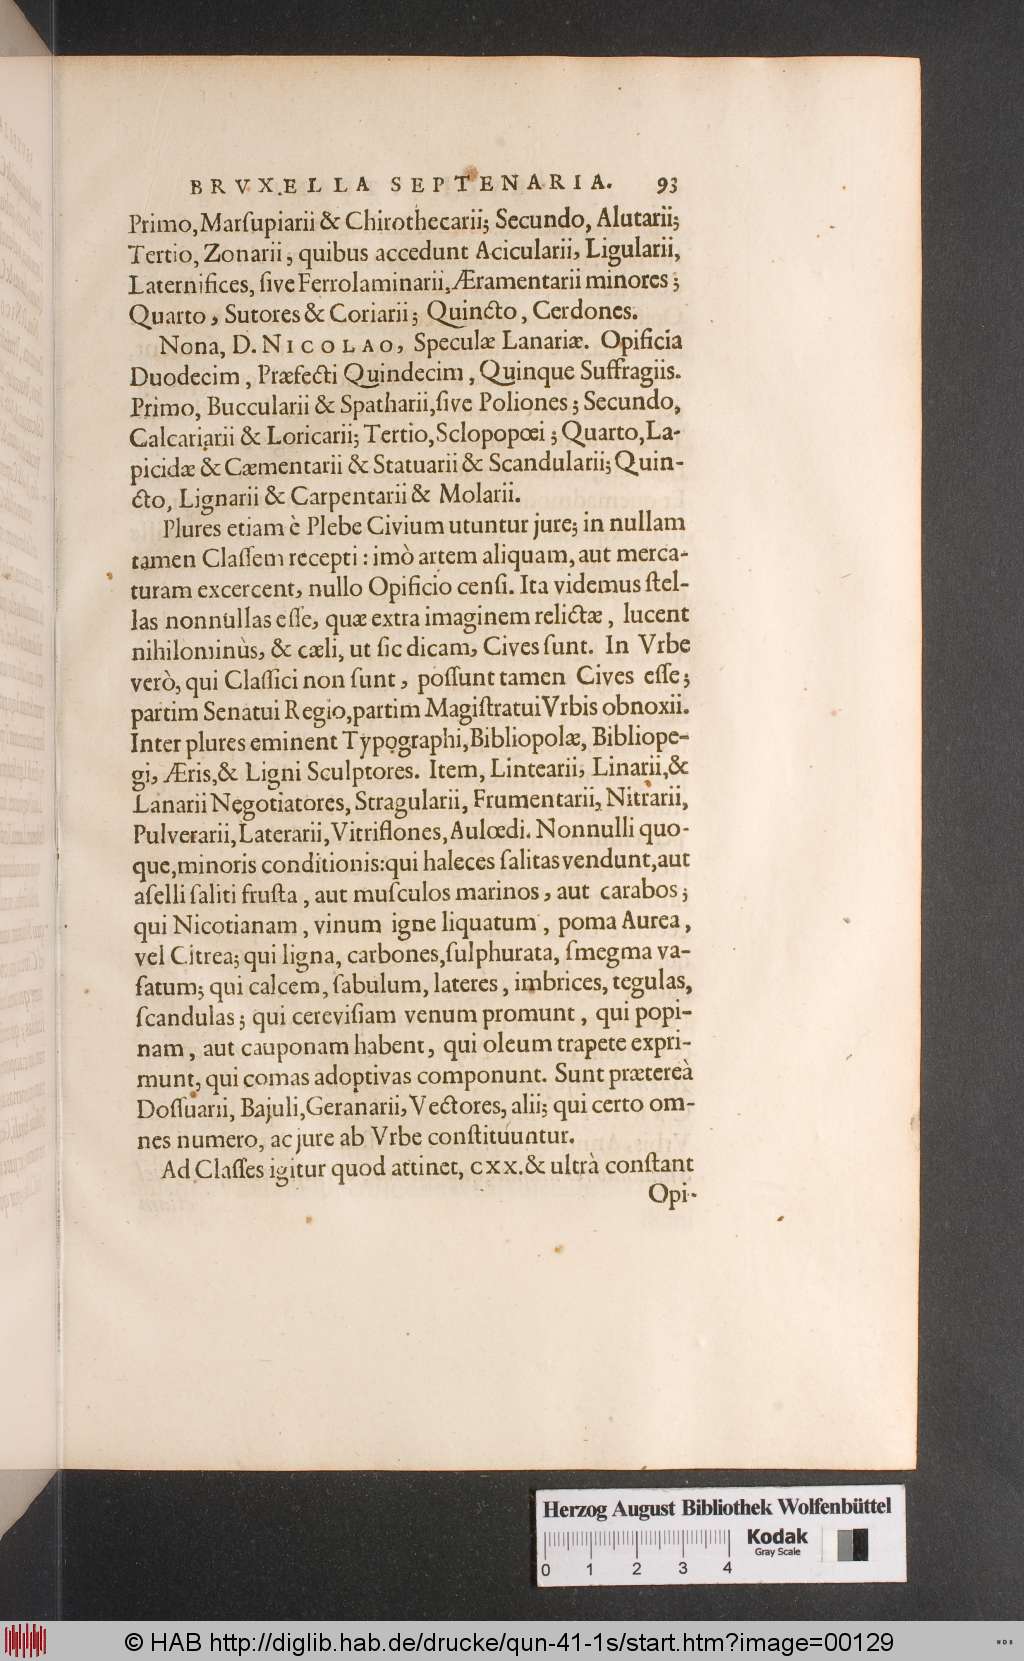 BRVXELLA SEPTENARIA. 93
Primo, Marſupiarii & Chirothecarii; Secundo, Alutarii;
Tertio, Zonarii, quibus accedunt Acicularii, Ligularii,
Laternifices, ſive Ferrolaminarii, Æramentarii minores;
Quarto, Sutores & Coriarii; Quincto, Cerdones.
Nona, D. NICOLAO, Speculæ Lanariæ. Opificia
Duodecim, Præfecti Quindecim, Quinque Suffragiis.
Primo, Buccularii & Spatharii, ſive Poliones; Secundo,
Calcariarii & Loricarii; Tertio, Sclopopœi; Quarto, La-
picidæ & Cæmentarii & Statuarii & Scandularii; Quin-
cto, Lignarii & Carpentarii & Molarii.
Plures etiam è Plebe Civium utuntur jure; in nullam
tamen Claſſem recepti: imò artem aliquam, aut merca-
turam excercent, nullo Opificio cenſi. Ita videmus ſtel-
las nonnullas eſſe, quæ extra imaginem relictæ, lucent
nihilominùs, & cæli, ut ſic dicam, Cives ſunt. In Vrbe
verò, qui Claſſici non ſunt, poſſunt tamen Cives eſſe;
partim Senatui Regio, partim Magiſtratui Vrbis obnoxii.
Inter plures eminent Typographi, Bibliopolæ, Bibliope-
gi, Æris, & Ligni Sculptores. Item, Lintearii, Linarii, &
Lanarii Negotiatores, Stragularii, Frumentarii, Nitrarii,
Pulverarii, Laterarii, Vitriflones, Aulœdi. Nonnulli quo-
que, minoris conditionis: qui haleces ſalitas vendunt, aut
aſelli ſaliti fruſta, aut muſculos marinos, aut carabos;
qui Nicotianam, vinum igne liquatum, poma Aurea,
vel Citrea; qui ligna, carbones, ſulphurata, ſmegma va-
ſatum; qui calcem, ſabulum, lateres, imbrices, tegulas,
ſcandulas; qui cereviſiam venum promunt, qui popi-
nam, aut cauponam habent, qui oleum trapete expri-
munt, qui comas adoptivas componunt. Sunt prætereà
Doſſuarii, Bajuli, Geranarii, Vectores, alii; qui certo om-
nes numero, ac jure ab Vrbe conſtituuntur.
Ad Claſſes igitur quod attinet, CXX. & ultrà conſtant
Opi-
Herzog August Bibliothek Wolfenbüttel
Kodak
Gray Scale
0 1 2 3 4
© HAB http://diglib.hab.de/drucke/qun-41-1s/start.htm?image=00129